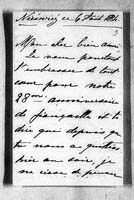 Nérinvég ce 6 Août 1884
3
Mon cher bien aimé.
Je veux pourtant
t'embrasser de tout
cœur pour notre
28me anniversaire
de fiançaille et te
dire que depuis que
tu nous a quittés
hier au soir, je
ne cesse de penser